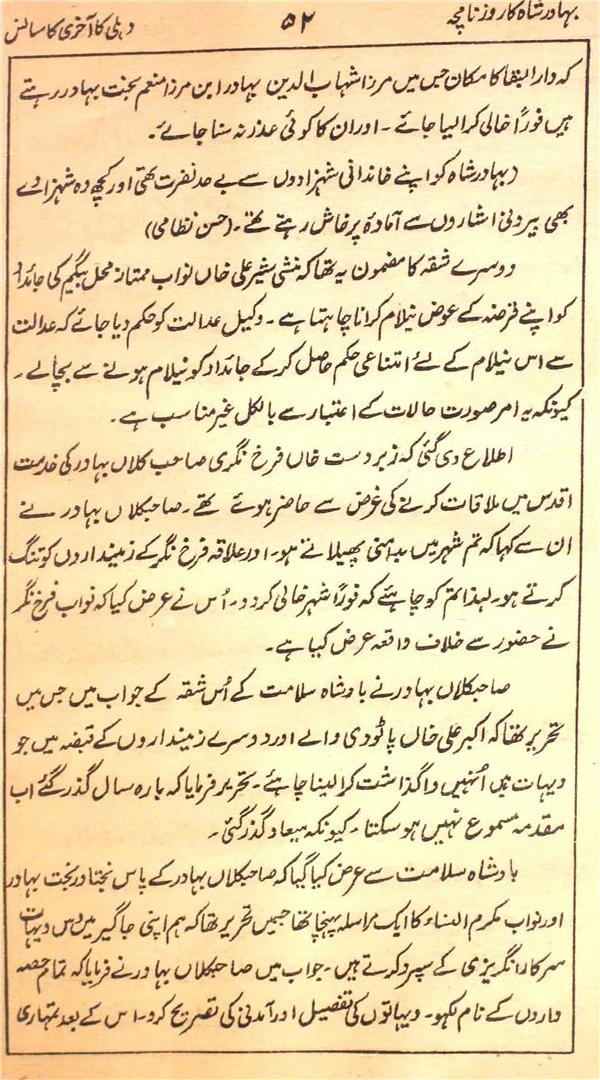 بہادر شاہ کا روزنامچہ ۵۲ دہلی کا آخری سانس
کہ دار البقا کا مکان جس میں مرزا شہاب الدین بہادر ابن مرزا منعم بخت بہادر رہتے
ہیں فوراً خالی کرالیا جائے ۔ اور ان کا کوئی عذر نہ سنا جائے ۔
(بہادر شاہ کو اپنے خاندانی شہزادوں سے بے حد نفرت تھی اور کچھ وہ شہزادے
بھی بیرونی اشاروں سے آمادۂ پرخاش رہتے تھے ۔ (حسن نظامی)
دوسرے شقہ کا مضمون یہ تھا کہ منشی شیر علی خاں نواب ممتاز محل بیگم کی جائداد
کو اپنے قرضہ کے عوض نیلام کرانا چاہتا ہے ۔ وکیل عدالت کو حکم دیا جائے کہ عدالت
سے اس نیلام کے لئے امتناعی حکم حاصل کر کے جائداد کو نیلام ہونے سے بچالے ۔
کیونکہ یہ امر صورت حالات کے اعتبار سے بالکل غیر مناسب ہے ۔
اطلاع دی گئی کہ زبردست خاں فرخ نگری صاحب کلاں بہادر کی خدمت
اقدس میں ملاقات کرنے کی غرض سے حاضر ہوئے تھے ۔ صاحبکلاں بہادر نے
ان سے کہا کہ تم شہر میں بدامنی پھیلاتے ہو ۔ اور علاقہ فرخ نگر کے زمینداروں کو تنگ
کرتے ہو ۔ لہذا تم کو چاہئے کہ فوراً شہر خالی کردو ۔ اُس نے عرض کیا کہ نواب فرخ نگر
نے حضور سے خلاف واقعہ عرض کیا ہے ۔
صاحبکلاں بہادر نے بادشاہ سلامت کے اُس شقہ کے جواب میں جس میں
تحریر تھا کہ اکبر علی خاں پاٹودی والے اور دوسرے زمینداروں کے قبضہ میں جو
دیہات ہیں اُنہیں واگذاشت کرالینا چاہئے ۔ تحریر فرمایا کہ بارہ سال گذر گئے اب
مقدمہ مسموع نہیں ہوسکتا ۔ کیونکہ میعاد گذر گئی ۔
بادشاہ سلامت سے عرض کیا گیا کہ صاحبکلاں بہادر کے پاس بختاور بخت بہادر
اور نواب مکرم النساء کا ایک مراسلہ پہنچا تھا جسمیں تحریر تھا کہ ہم اپنی جاگیر میں دس دیہات
سرکار انگریزی کے سپرد کرتے ہیں ۔ جواب میں صاحبکلاں بہادر نے فرمایا کہ تمام حصہ
داروں کے نام لکھو ۔ دیہاتوں کی تفصیل اور آمدنی کی تصریح کرو ۔ اس کے بعد تمہاری